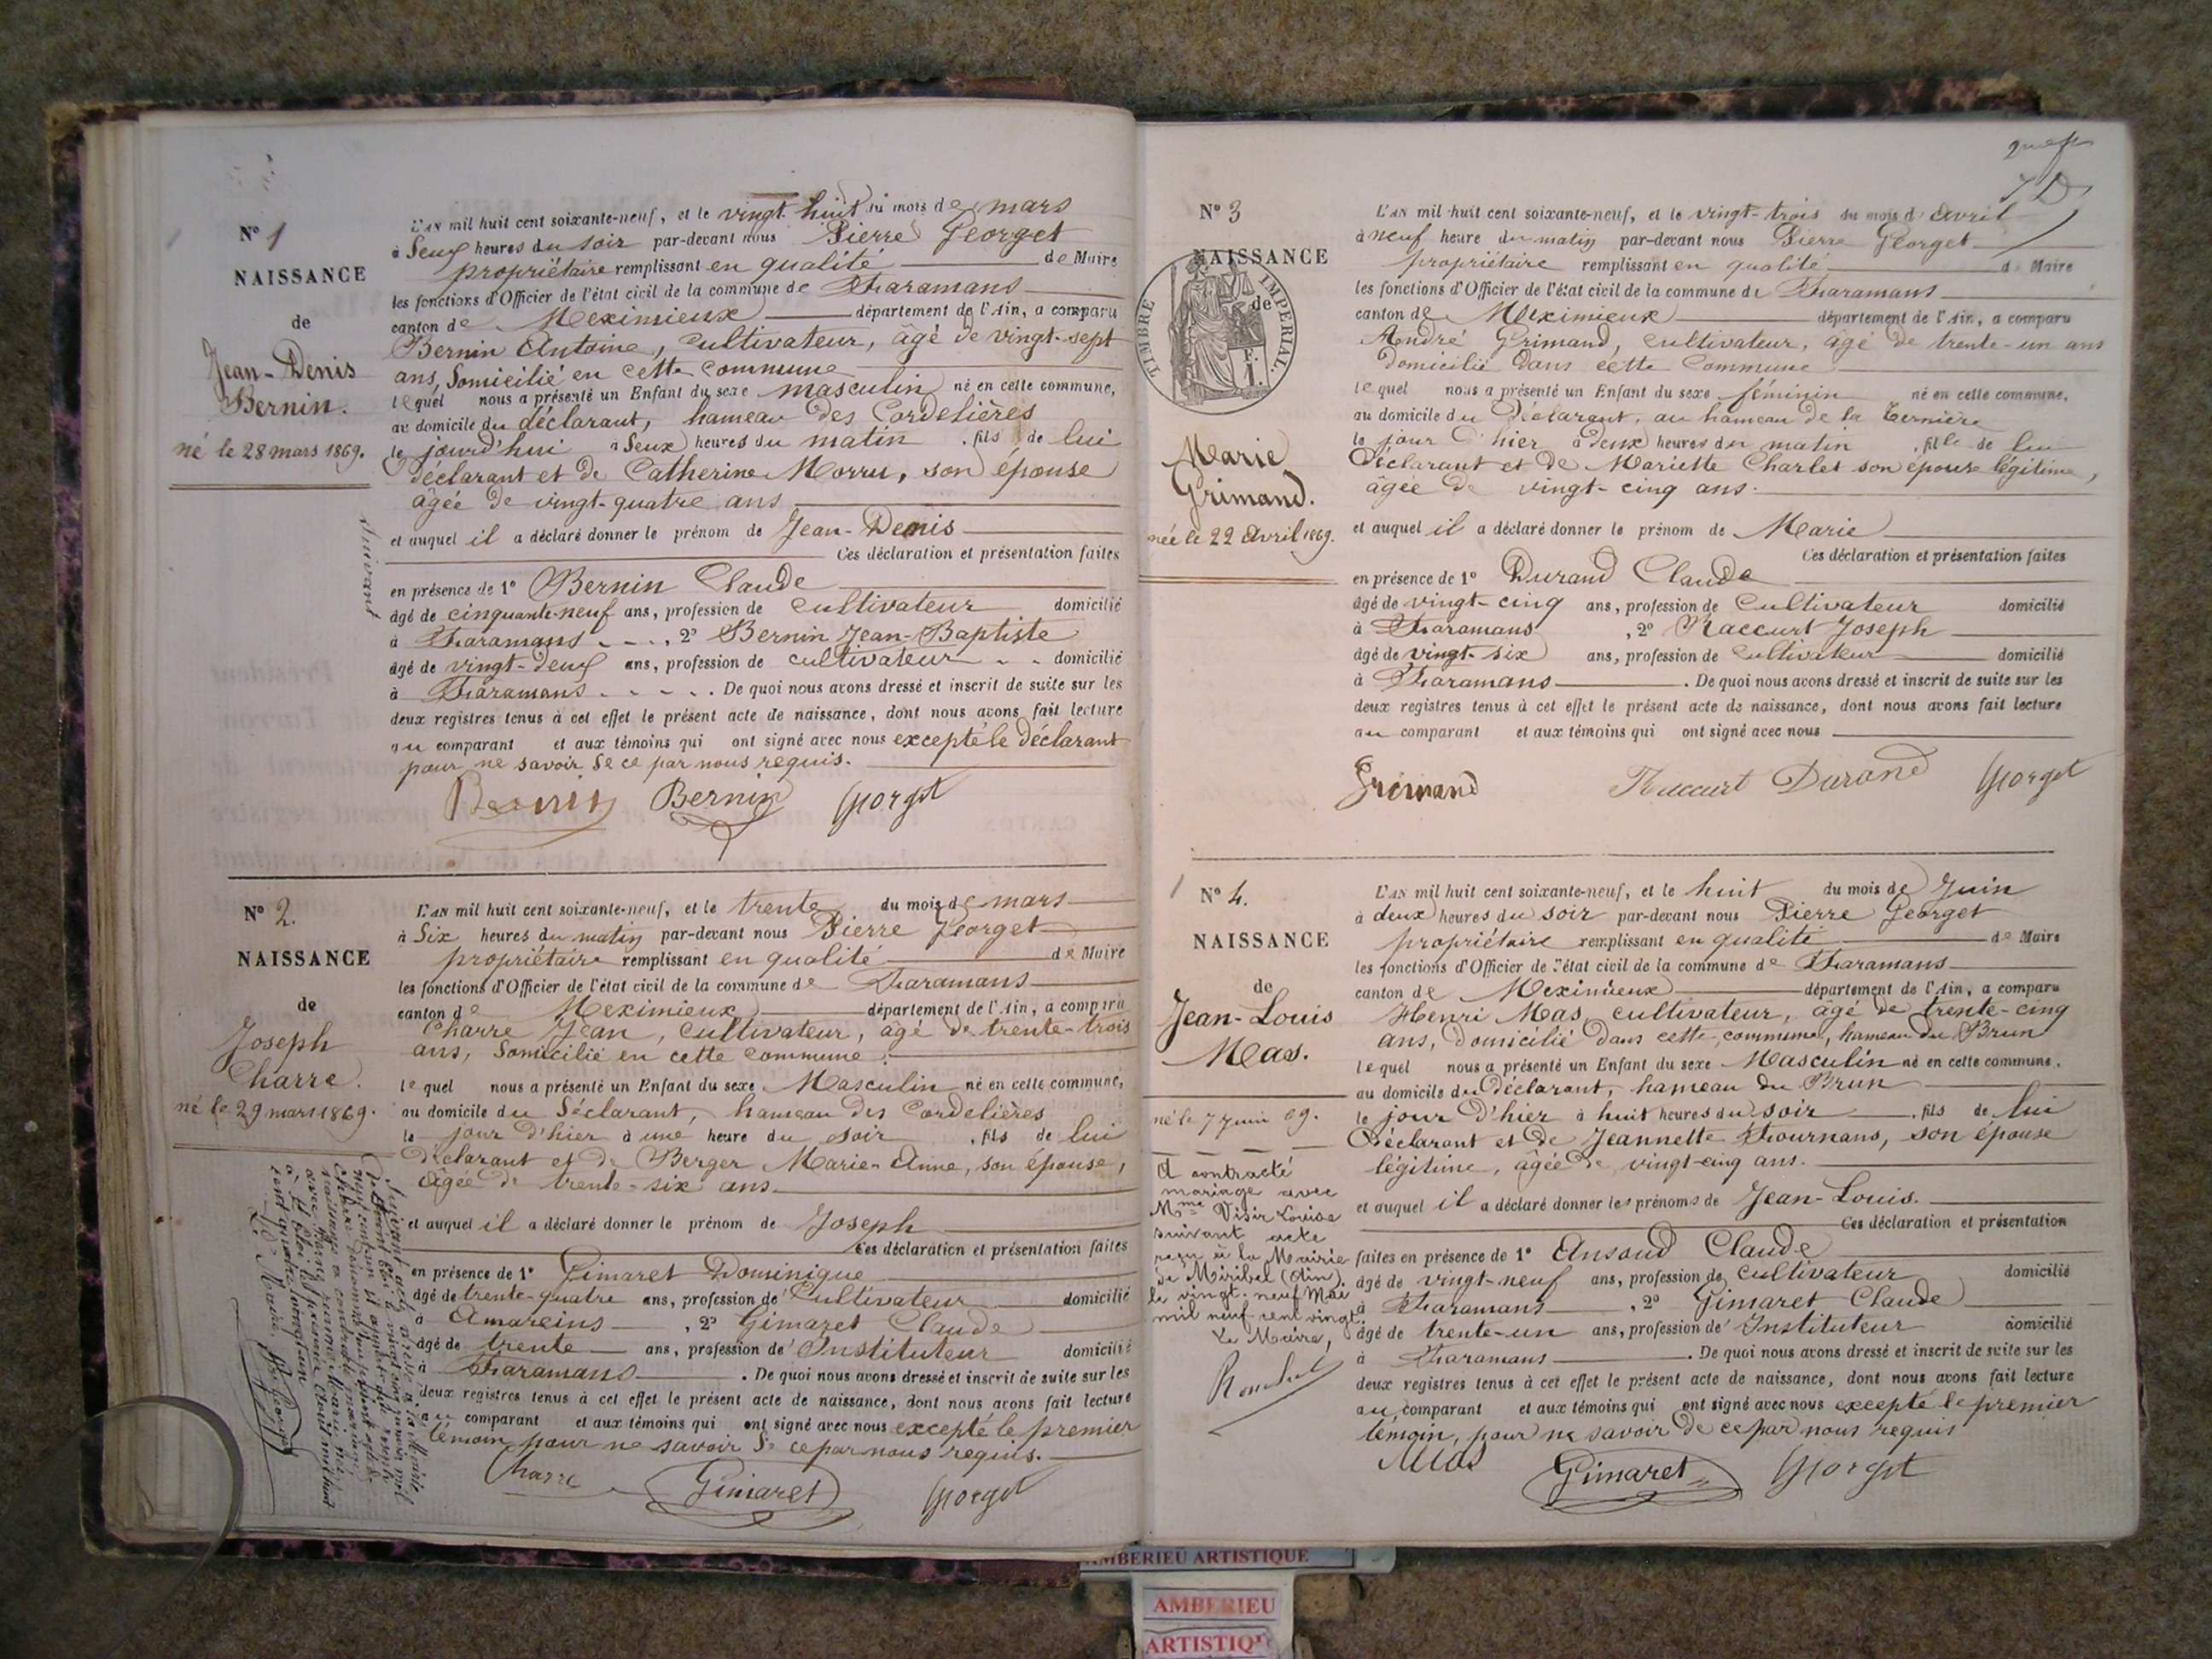 N° 1
NAISSANCE
de
Jean-Denis
Bernin.
né le 28 mars 1869.
L'AN mil huit cent soixante-neuf, et le vingt-huit du mois de mars
à deux heures du soir par-devant nous Pierre Georget
propriétaire remplissant en qualité de Maire
les fonctions d'Officier de l'état civil de la commune de Faramans
canton de Meximieux département de l'Ain, a comparu
Bernin Antoine, cultivateur, âgé de vingt-sept
ans, domicilié en cette commune
lequel nous a présenté un Enfant du sexe masculin né en cette commune,
au domicile du déclarant, hameau des Cordelières
le jourd'hui à deux heures du matin, fils de lui
déclarant et de Catherine Morru, son épouse
âgée de vingt-quatre ans
et auquel il a déclaré donner le prénom de Jean-Denis
Ces déclaration et présentation faites
en présence de 1° Bernin Claude
âgé de cinquante-neuf ans, profession de cultivateur domicilié
à Faramans, 2° Bernin Jean-Baptiste
âgé de vingt-deux ans, profession de cultivateur domicilié
à Faramans. De quoi nous avons dressé et inscrit de suite sur les
deux registres tenus à cet effet le présent acte de naissance, dont nous avons fait lecture
au comparant et aux témoins qui ont signé avec nous excepté le déclarant
pour ne savoir de ce par nous requis.
Bernin Bernin Georget
Suivant
N° 2.
NAISSANCE
de
Joseph
Charre.
né le 29 mars 1869.
L'AN mil huit cent soixante-neuf, et le trente du mois de mars
à six heures du matin par-devant nous Pierre Georget
propriétaire remplissant en qualité de Maire
les fonctions d'Officier de l'état civil de la commune de Faramans
canton de Meximieux département de l'Ain, a comparu
Charre Jean, cultivateur, âgé de trente-trois
ans, domicilié en cette commune.
lequel nous a présenté un Enfant du sexe Masculin né en cette commune,
au domicile du déclarant, hameau des Cordelières
le jour d'hier à une heure du soir, fils de lui
déclarant et de Berger Marie-Anne, son épouse,
âgée de trente-six ans
et auquel il a déclaré donner le prénom de Joseph
Ces déclaration et présentation faites
en présence de 1° Gimaret Dominique
âgé de trente-quatre ans, profession de Cultivateur domicilié
à Amareins, 2° Gimaret Claude
âgé de trente ans, profession de Instituteur domicilié
à Faramans. De quoi nous avons dressé et inscrit de suite sur les
deux registres tenus à cet effet le présent acte de naissance, dont nous avons fait lecture
au comparant et aux témoins qui ont signé avec nous excepté le premier
témoin pour ne savoir de ce par nous requis.
Charre Gimaret Georget
N° 3
NAISSANCE
de
TIMBRE IMPERIAL.
Marie
Grimand.
née le 22 Avril 1869.
L'AN mil huit cent soixante-neuf, et le vingt-trois du mois d'avril
à neuf heure du matin par-devant nous Pierre Georget
propriétaire remplissant en qualité de Maire
les fonctions d'Officier de l'état civil de la commune de Faramans
canton de Meximieux département de l'Ain, a comparu
André Grimand, cultivateur, âgé de trente-un ans
domicilié dans cette commune
lequel nous a présenté un Enfant du sexe féminin né en cette commune,
au domicile du déclarant, au hameau de la
le jour d'hier à deux heures du matin, fille de lui
déclarant et de Mariette Charlet son épouse légitime,
âgée de vingt-cinq ans.
et auquel il a déclaré donner le prénom de Marie
Ces déclaration et présentation faites
en présence de 1° Durand Claude
âgé de vingt-cinq ans, profession de Cultivateur domicilié
à Faramans, 2° Raccurt Joseph
âgé de vingt-six ans, profession de Cultivateur domicilié
à Faramans. De quoi nous avons dressé et inscrit de suite sur les
deux registres tenus à cet effet le présent acte de naissance, dont nous avons fait lecture
au comparant et aux témoins qui ont signé avec nous
Grimand Raccurt Durand Georget
N° 4.
NAISSANCE
de
Jean-Louis
Mas.
né le 7 juin 69.
L'AN mil huit cent soixante-neuf, et le huit du mois de Juin
à deux heures du soir par-devant nous Pierre Georget
propriétaire remplissant en qualité de Maire
les fonctions d'Officier de l'état civil de la commune de Faramans
canton de Meximieux département de l'Ain, a comparu
Henri Mas, cultivateur, âgé de trente-cinq
ans, domicilié dans cette commune, hameau du Brun
lequel nous a présenté un Enfant du sexe Masculin né en cette commune,
au domicile du déclarant, hameau du Brun
le jour d'hier à huit heures du soir, fils de lui
déclarant et de Jeannette Fournans, son épouse
légitime, âgée de vingt-cinq ans.
et auquel il a déclaré donner les prénoms de Jean-Louis.
Ces déclaration et présentation
faites en présence de 1° Ansoud Claude
âgé de vingt-neuf ans, profession de cultivateur domicilié
à Faramans, 2° Gimaret Claude
âgé de trente-un ans, profession de Instituteur domicilié
à Faramans. De quoi nous avons dressé et inscrit de suite sur les
deux registres tenus à cet effet le présent acte de naissance, dont nous avons fait lecture
au comparant et aux témoins qui ont signé avec nous excepté le premier
témoin, pour ne savoir de ce par nous requis
Mas Gimaret Georget
A contracté
mariage avec
Mme Visir Louise
suivant acte
reçu à la Mairie
de Miribel (Ain).
le vingt-neuf Mai
mil neuf cent vingt.
Le Maire,
AMBERIEU ARTISTIQUE
AMBERIEU
ARTISTIQUE